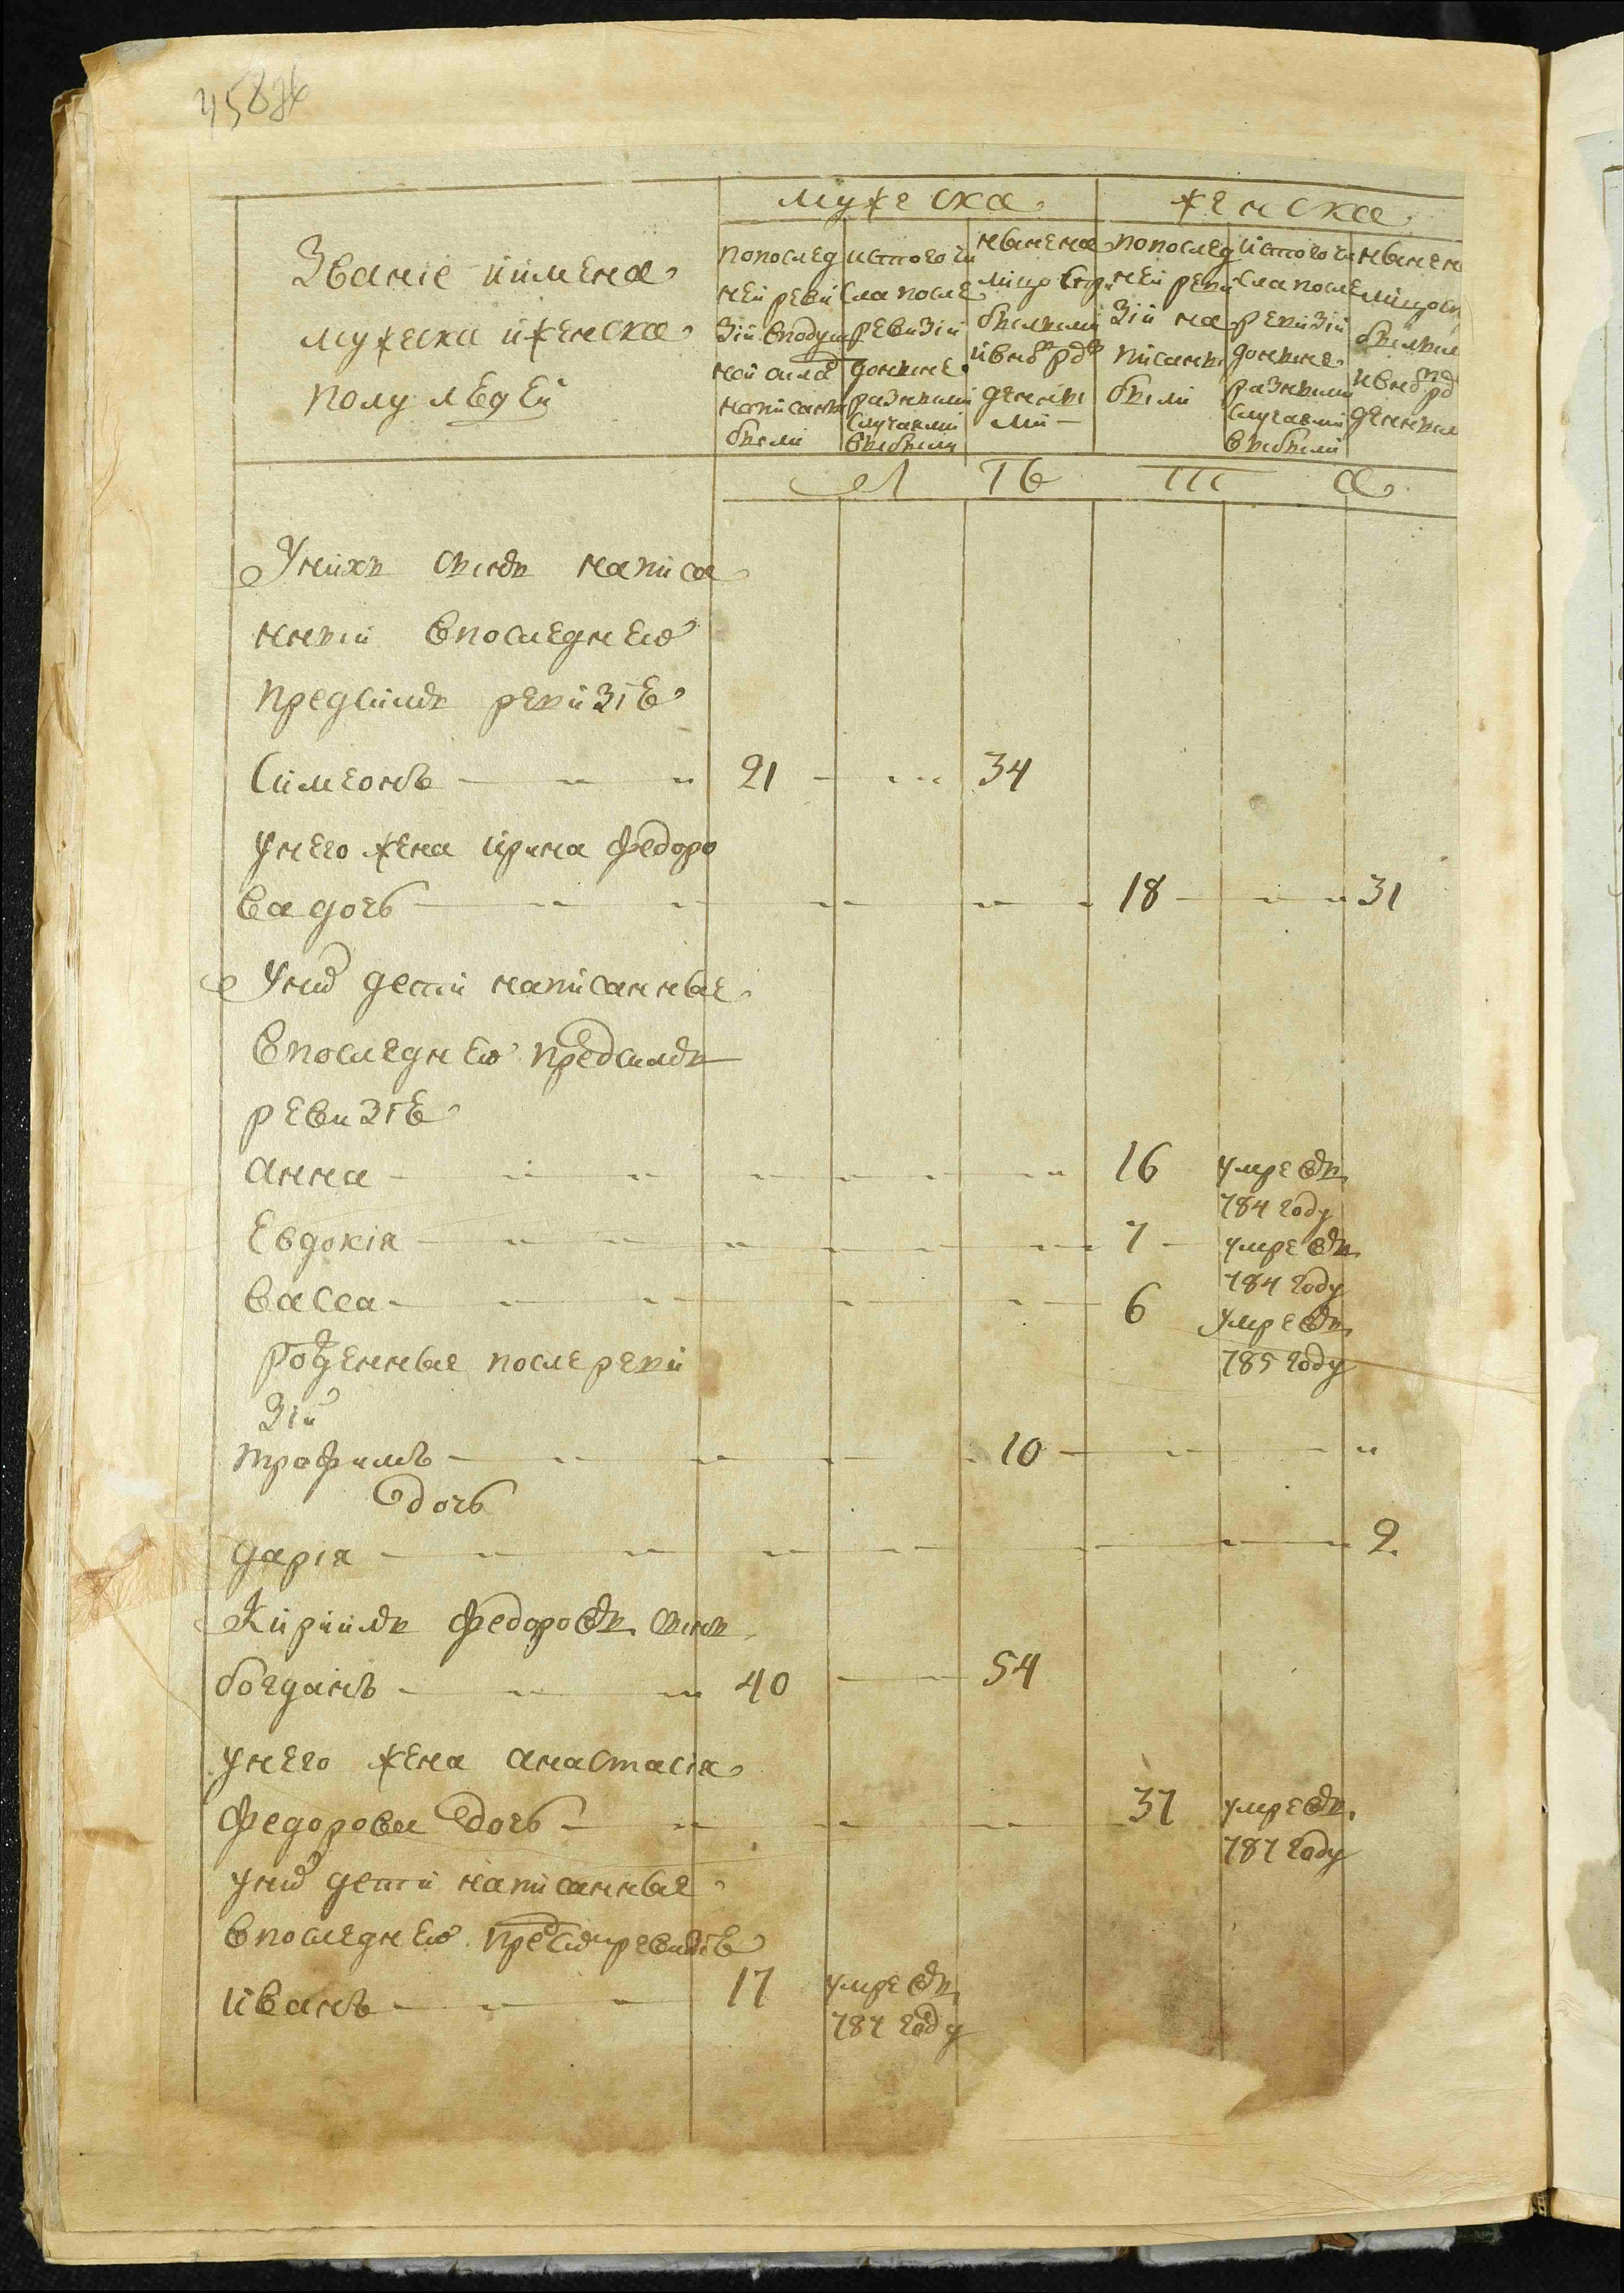 458
мужеска
женска
Званіе иимена
мужеска иженска
полу людей
попослед
ней реви
зій вподуш
ной окладъ
написаны
были
истого чи
сла после
ревизій
доныне
разными
случаями
выбыли
ныне на
лицо
былыми
ивновь
денны
ми
попослед
ней реви
зій на
писаны
были
истого чи
сла после
ревизій
доныне
разными
случаями
выбыли
ныне н
лицо
былыми
ивновь
денными
Л Ѣ Т А
Унихъ сынъ написа
нный впоследнею
предсимъ ревизіе
Симеонъ 21 34
унего жена ирина федоро
ва дочь 18 31
Уних дети написанные
впоследнею предсимъ
ревизіе
анна 16 умре въ
784 году
Евдокія 7 умре въ
784 году
васса 6 умре въ
785 году
рожденные после реви
зій
трофимъ 10
дочь
дарія 9
Кирилъ федоровъ сынъ
богданъ 40 54
унего жена анастасія
федорова дочь 37 умре въ
787 году
уних дети написанные
впоследнею предсимъ ревизіе
иванъ 17 умре въ
787 году